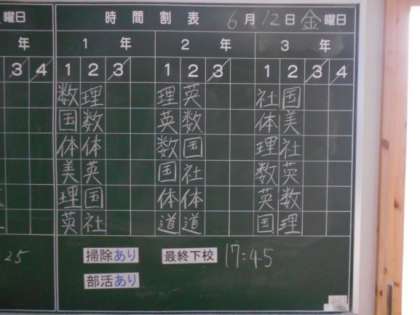 曜日 時間割表 6月12日金曜日
年 1年 2年 3年
3 4 1 2 3 1 2 3 1 2 3 4
数 理 理 英 社 国
国 数 英 数 体 美
体 体 数 国 理 社
美 英 国 社 数 英
理 国 体 体 英 数
英 社 道 道 国 理
25 掃除あり 最終下校 17:45
部活あり